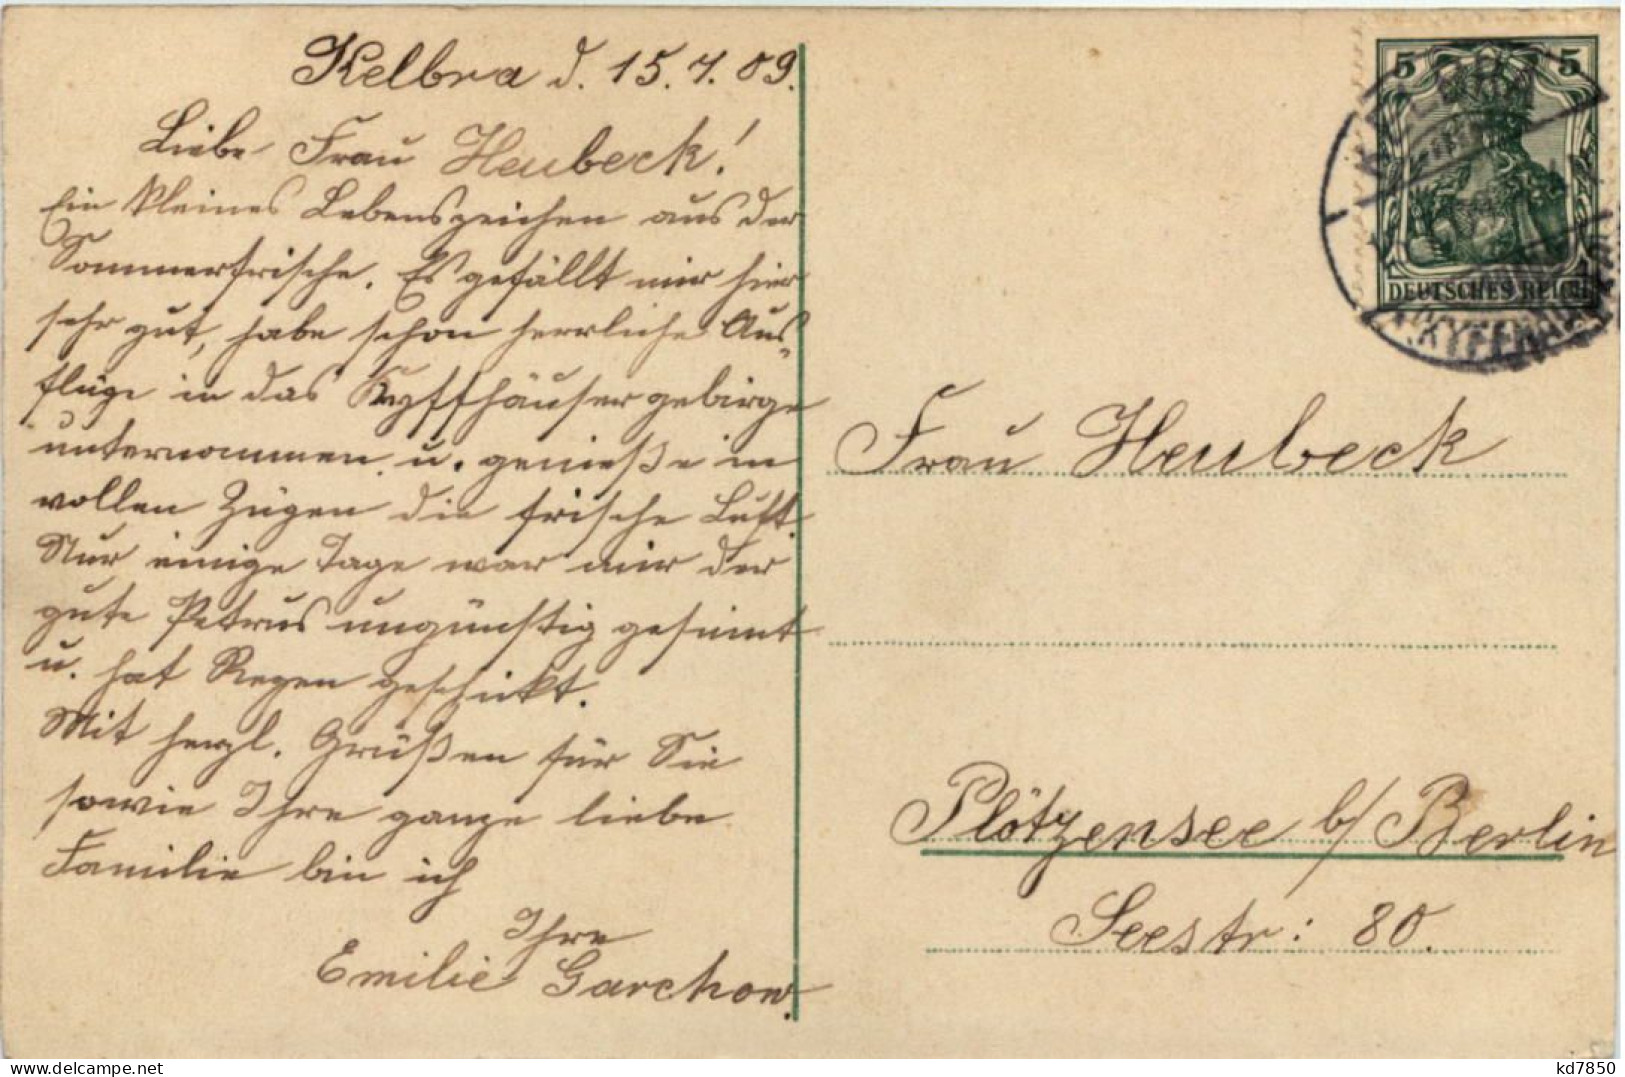 Kelbra d. 15.7.09.
Liebe Frau Heubeck!
Ein kleines Lebenszeichen aus der
Sommerfrische. Es gefällt mir hier
sehr gut, habe schon herrliche Aus-
flüge in das Kyffhäusergebirge
unternommen u. genieße in
vollen Zügen die frische Luft.
Nur einige Tage war mir der
gute Petrus ungünstig gesinnt
u. hat Regen geschickt.
Mit herzl. Grüßen für Sie
sowie Ihre ganze liebe
Familie bin ich
Ihre
Emilie Garchow.
5 5
DEUTSCHES REICH
Frau Heubeck
Plötzensee b/ Berlin
Seestr: 80.
delcampe.net
kd7850